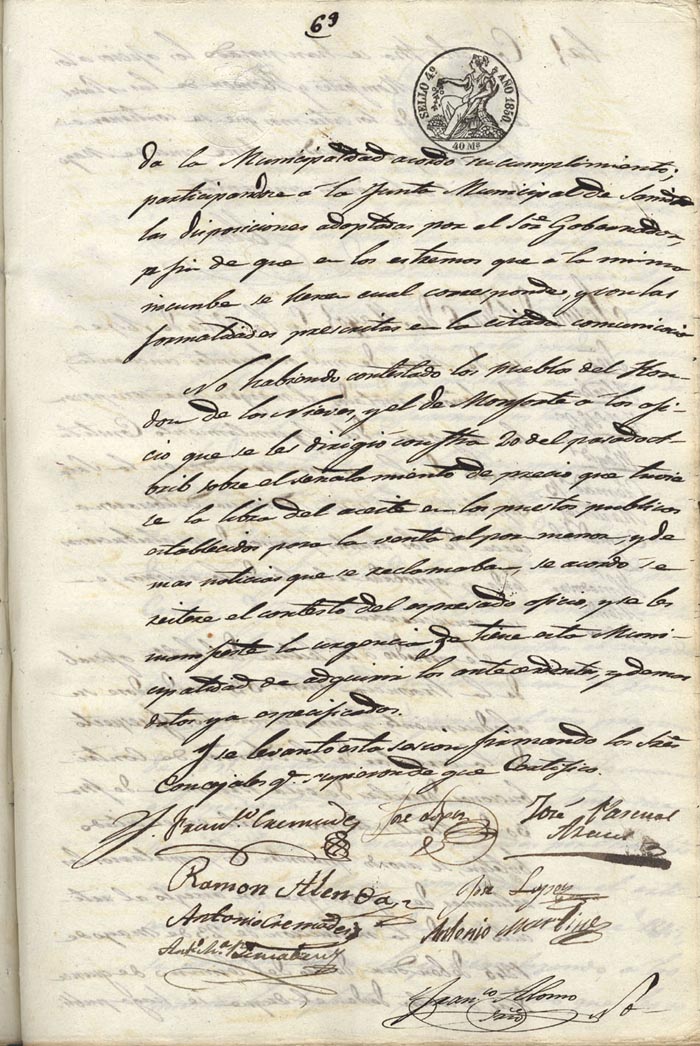 69
SELLO 4º AÑO 1850.
40 Ms
da la Municipalidad acordó su cumplimiento;
participandose á la Junta Municipal de Sanidad
las disposiciones adoptadas por el Sor. Gobernador,
a fin de que en los estremos que á la misma
incunbe se llenen cual corresponde, y con las
formalidades prescritas en la citada comunicacio
No habiendo contestado los Pueblos del Hon-
don de los Nieves, y el de Monforte a los ofi-
cio que se les dirigió con fha 20 del pasado
sobre el señalamiento de precio que tuvie
se la libra del aceite en los puestos publicos
establecidos para la venta al por menor, y de
mas noticias que se reclamaba, se acordo se
reitere el contesto del espresado oficio, y se les
manifieste la urgencia qe tiene esta Muni
cipalidad de adquirir los antecedentes, y demas
datos ya especificados.
Y se levantó esta sesion firmando los Sres
Concejales q. supieron de que Certifico.
Franco Cremades José Lopez José Pascual
Ramon Alenda José Lopez
Antonio Cremades Antonio Martinez
Franco Alomo